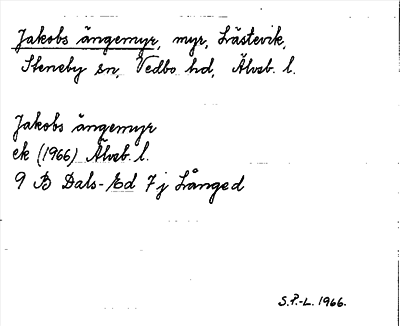 Jakobs ängemyr, myr, Lästevik,
Steneby sn, Vedbo hd, Älvsb. l.
Jakobs ängemyr
ek (1966) Älvsb. l.
9 B Dals-Ed 7j Långed
S.P.-L. 1966.